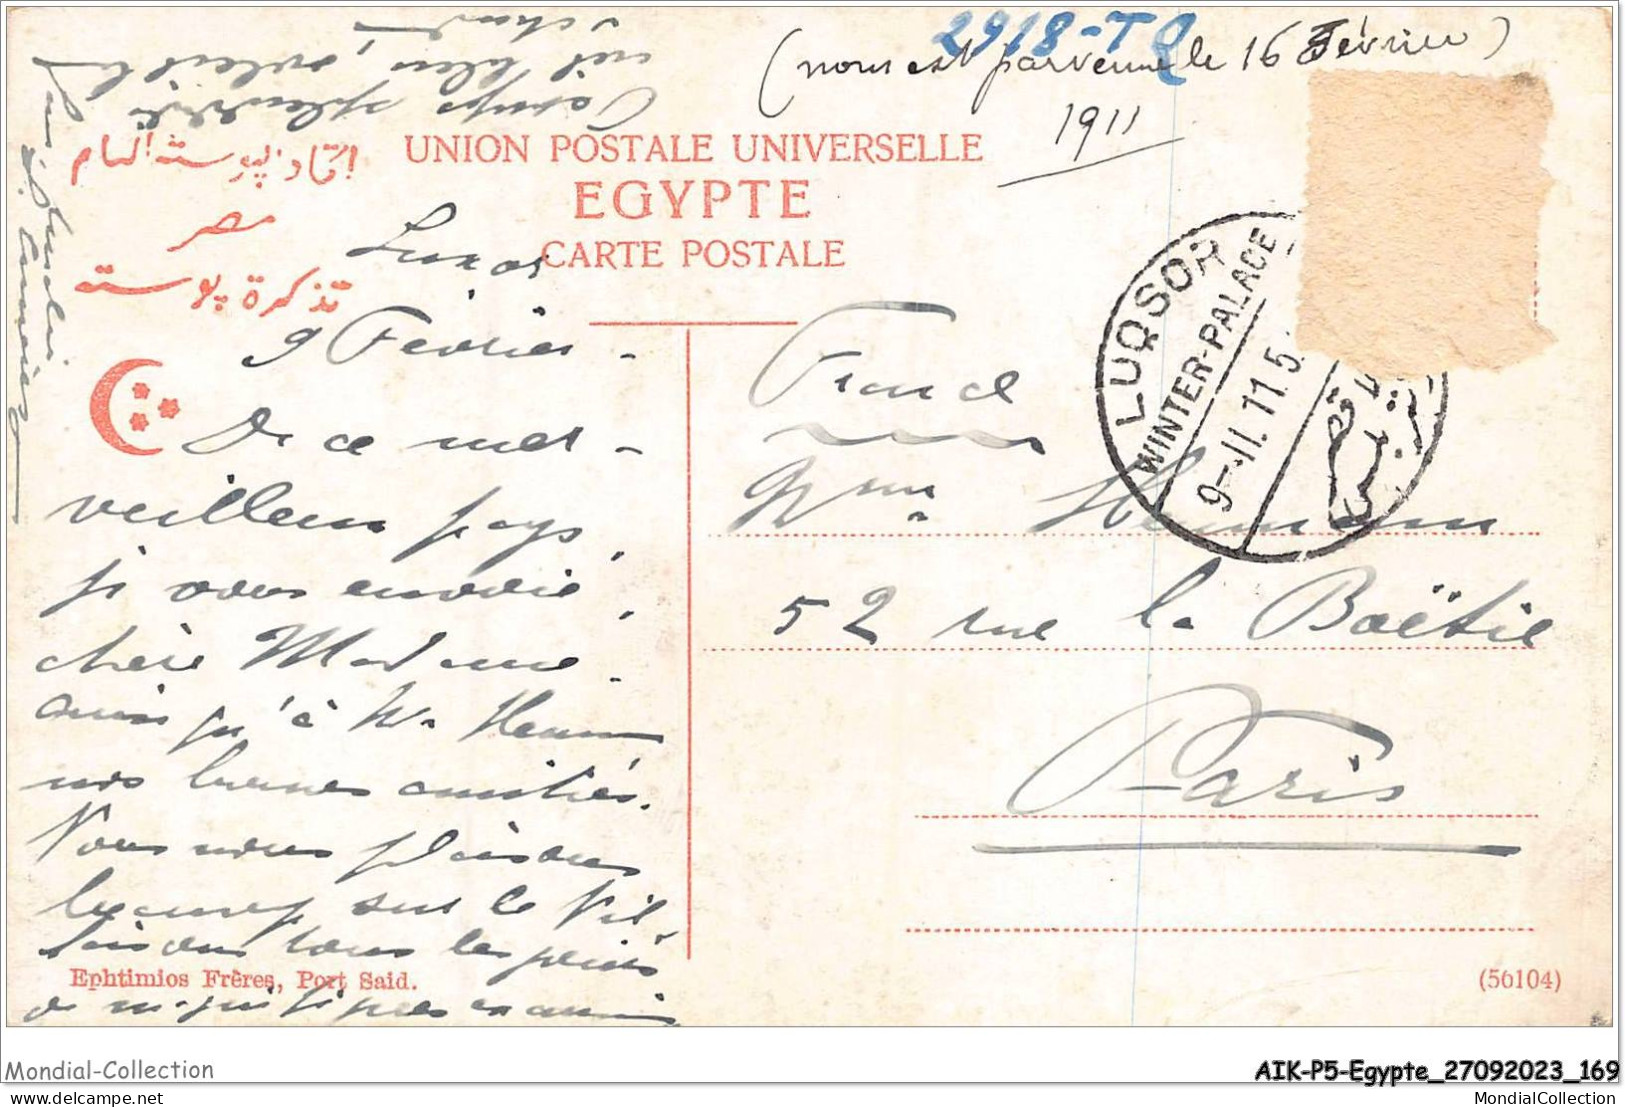 2918-TQ
(nous est parvenue le 16 Février)
1911
Temps splendide
ciel bleu, soleil
chaud
اتحاد پوسته العام
مصر
تذكرة پوسته
UNION POSTALE UNIVERSELLE
EGYPTE
CARTE POSTALE
LUQSOR
WINTER-PALACE
9-II.11.5
Luxor
9 Février -
De ce mer-
veilleux pays,
je vous envoie,
chère Madame,
ainsi qu'à Mr Heumann
nos bonnes amitiés.
Nous nous plaisons
beaucoup sur le Nil,
faisons tous les
France
Mme Heumann
52 rue la Boëtie
Paris
Ephtimios Frères, Port Said.
(56104)
Mondial-Collection
AIK-P5-Egypte_27092023_169
MondialCollection